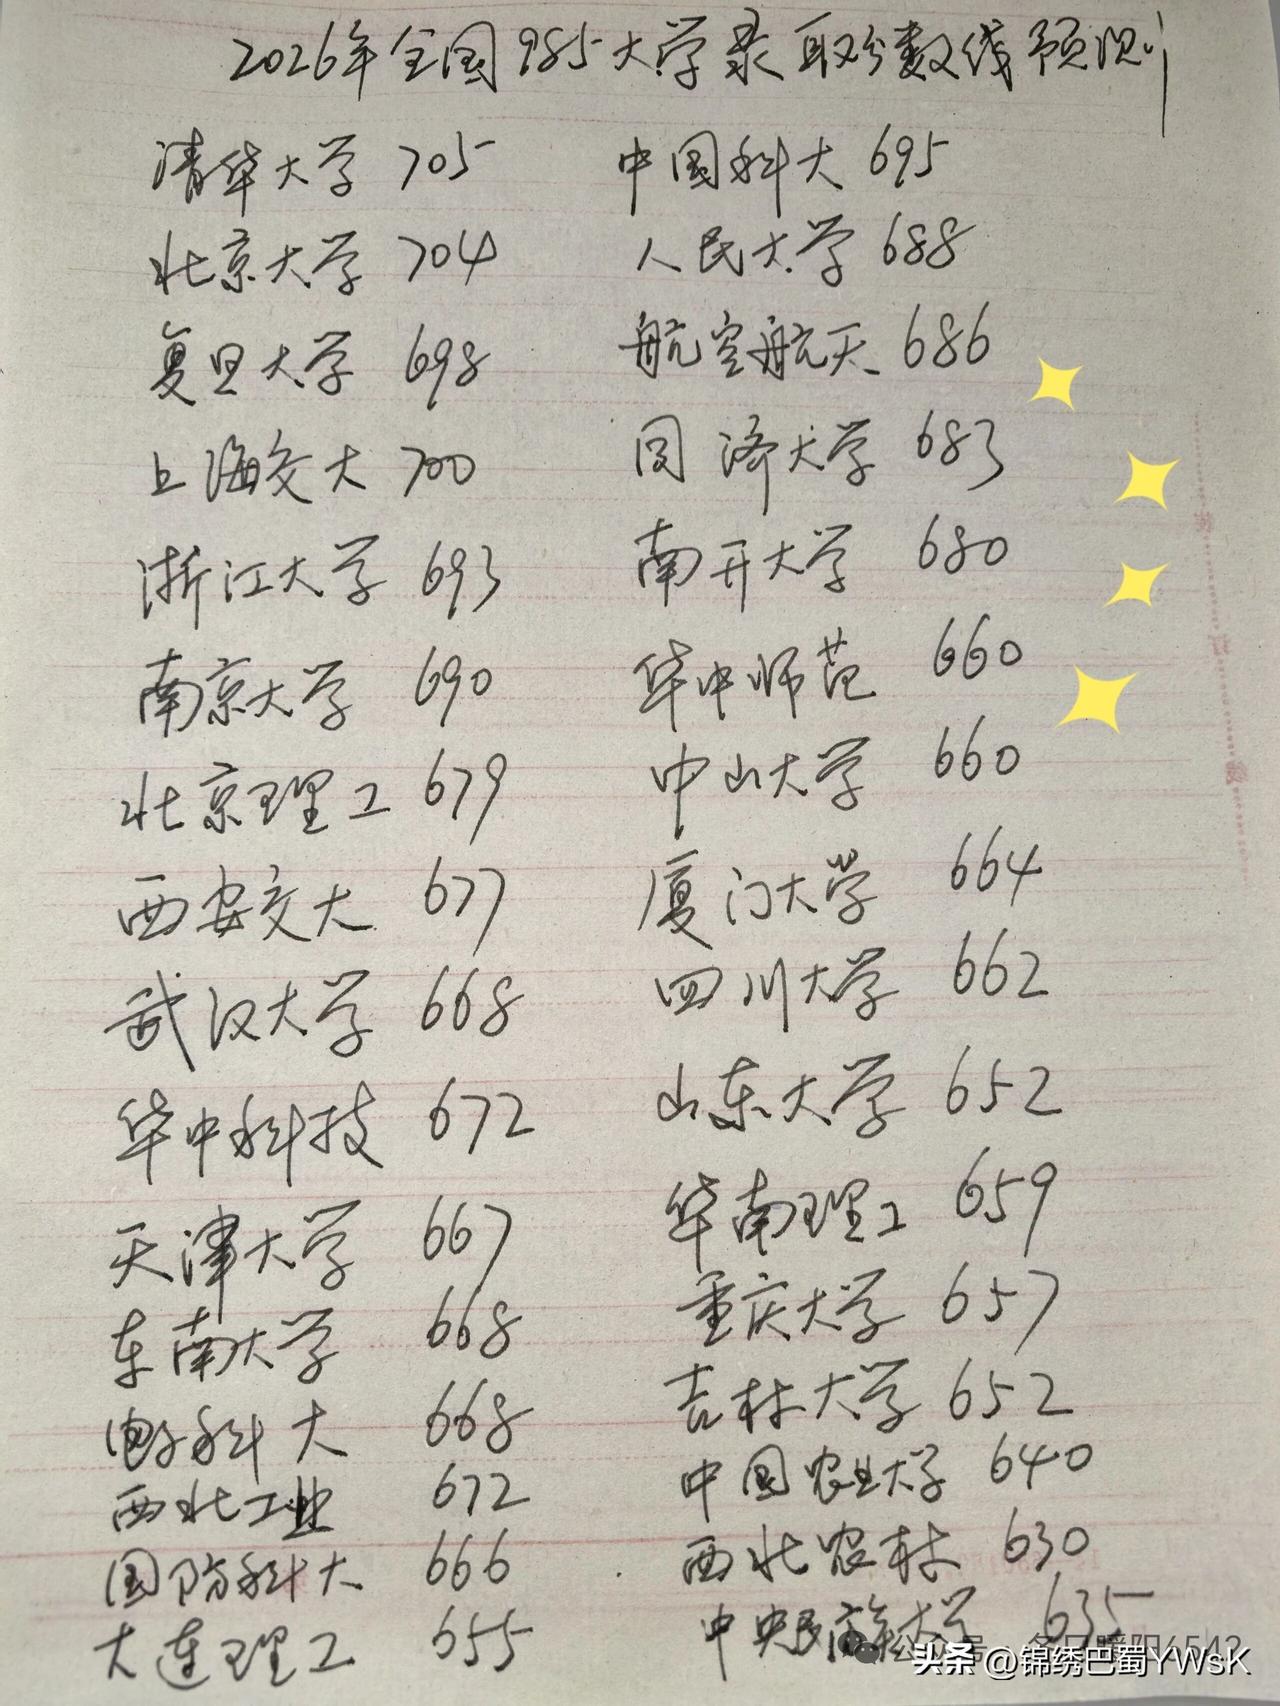 2026年全国985大学录取分数线预测
清华大学 705 中国科大 695
北京大学 704 人民大学 688
复旦大学 698 航空航天 686
上海交大 700 同济大学 683
浙江大学 693 南开大学 680
南京大学 690 华中师范 660
北京理工 679 中山大学 660
西安交大 677 厦门大学 664
武汉大学 668 四川大学 662
华中科技 672 山东大学 652
天津大学 667 华南理工 659
东南大学 668 重庆大学 657
电子科大 668 吉林大学 652
西北工业 672 中国农业大学 640
国防科大 666 西北农林 630
大连理工 655 中央民族大学 635
公众号·冬日暖阳6542
头条 @锦绣巴蜀YWsK